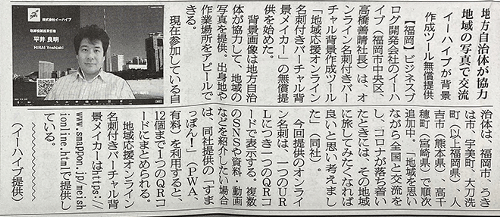 地方自治体が協力
地域の写真で交流
イーハイブが背景
作成ツール無償提供
【福岡】ビジネスブ
ログ開発会社のイーハ
イブ(福岡市中央区、
高橋善清社長)は、オ
ンライン名刺付きバー
チャル背景作成ツール
「地域応援オンライン
名刺付きバーチャル背
景メイカー」の無償提
供を始めた。
背景画像は地方自治
体が協力して、地域の
写真を提供。出身地や
作業場所をアピールで
きる。
現在参加している自
治体は、福岡市、うき
は市、宇美町、大刀洗
町(以上福岡県)、人
吉市(熊本県)、高千
穂町(宮崎県)で順次
追加中。「地域を思い
ながら全国と交流を
し、コロナが落ち着い
たときには、その地域
に旅してみたくなれば
良いと思い考えまし
た」(同社)。
今回提供のオンライ
ン名刺は、一つのUR
Lにつき一つのQRコ
ードで表示する。複数
のSNSや資料・動画
などを紹介したい場合
は、同社提供の「すま
っぽん!」(PWA、
有料)を利用すると、
12個まで1つのQRコ
ードにまとめられる。
地域応援オンライン
名刺付きバーチャル背
景メイカーはhttps://
www.smappon.jp/meish
ionline.htmlで提供し
ている。
(イーハイブ提供)
株式会社イーハイブ
平井 良明
HIRAI Yoshiaki